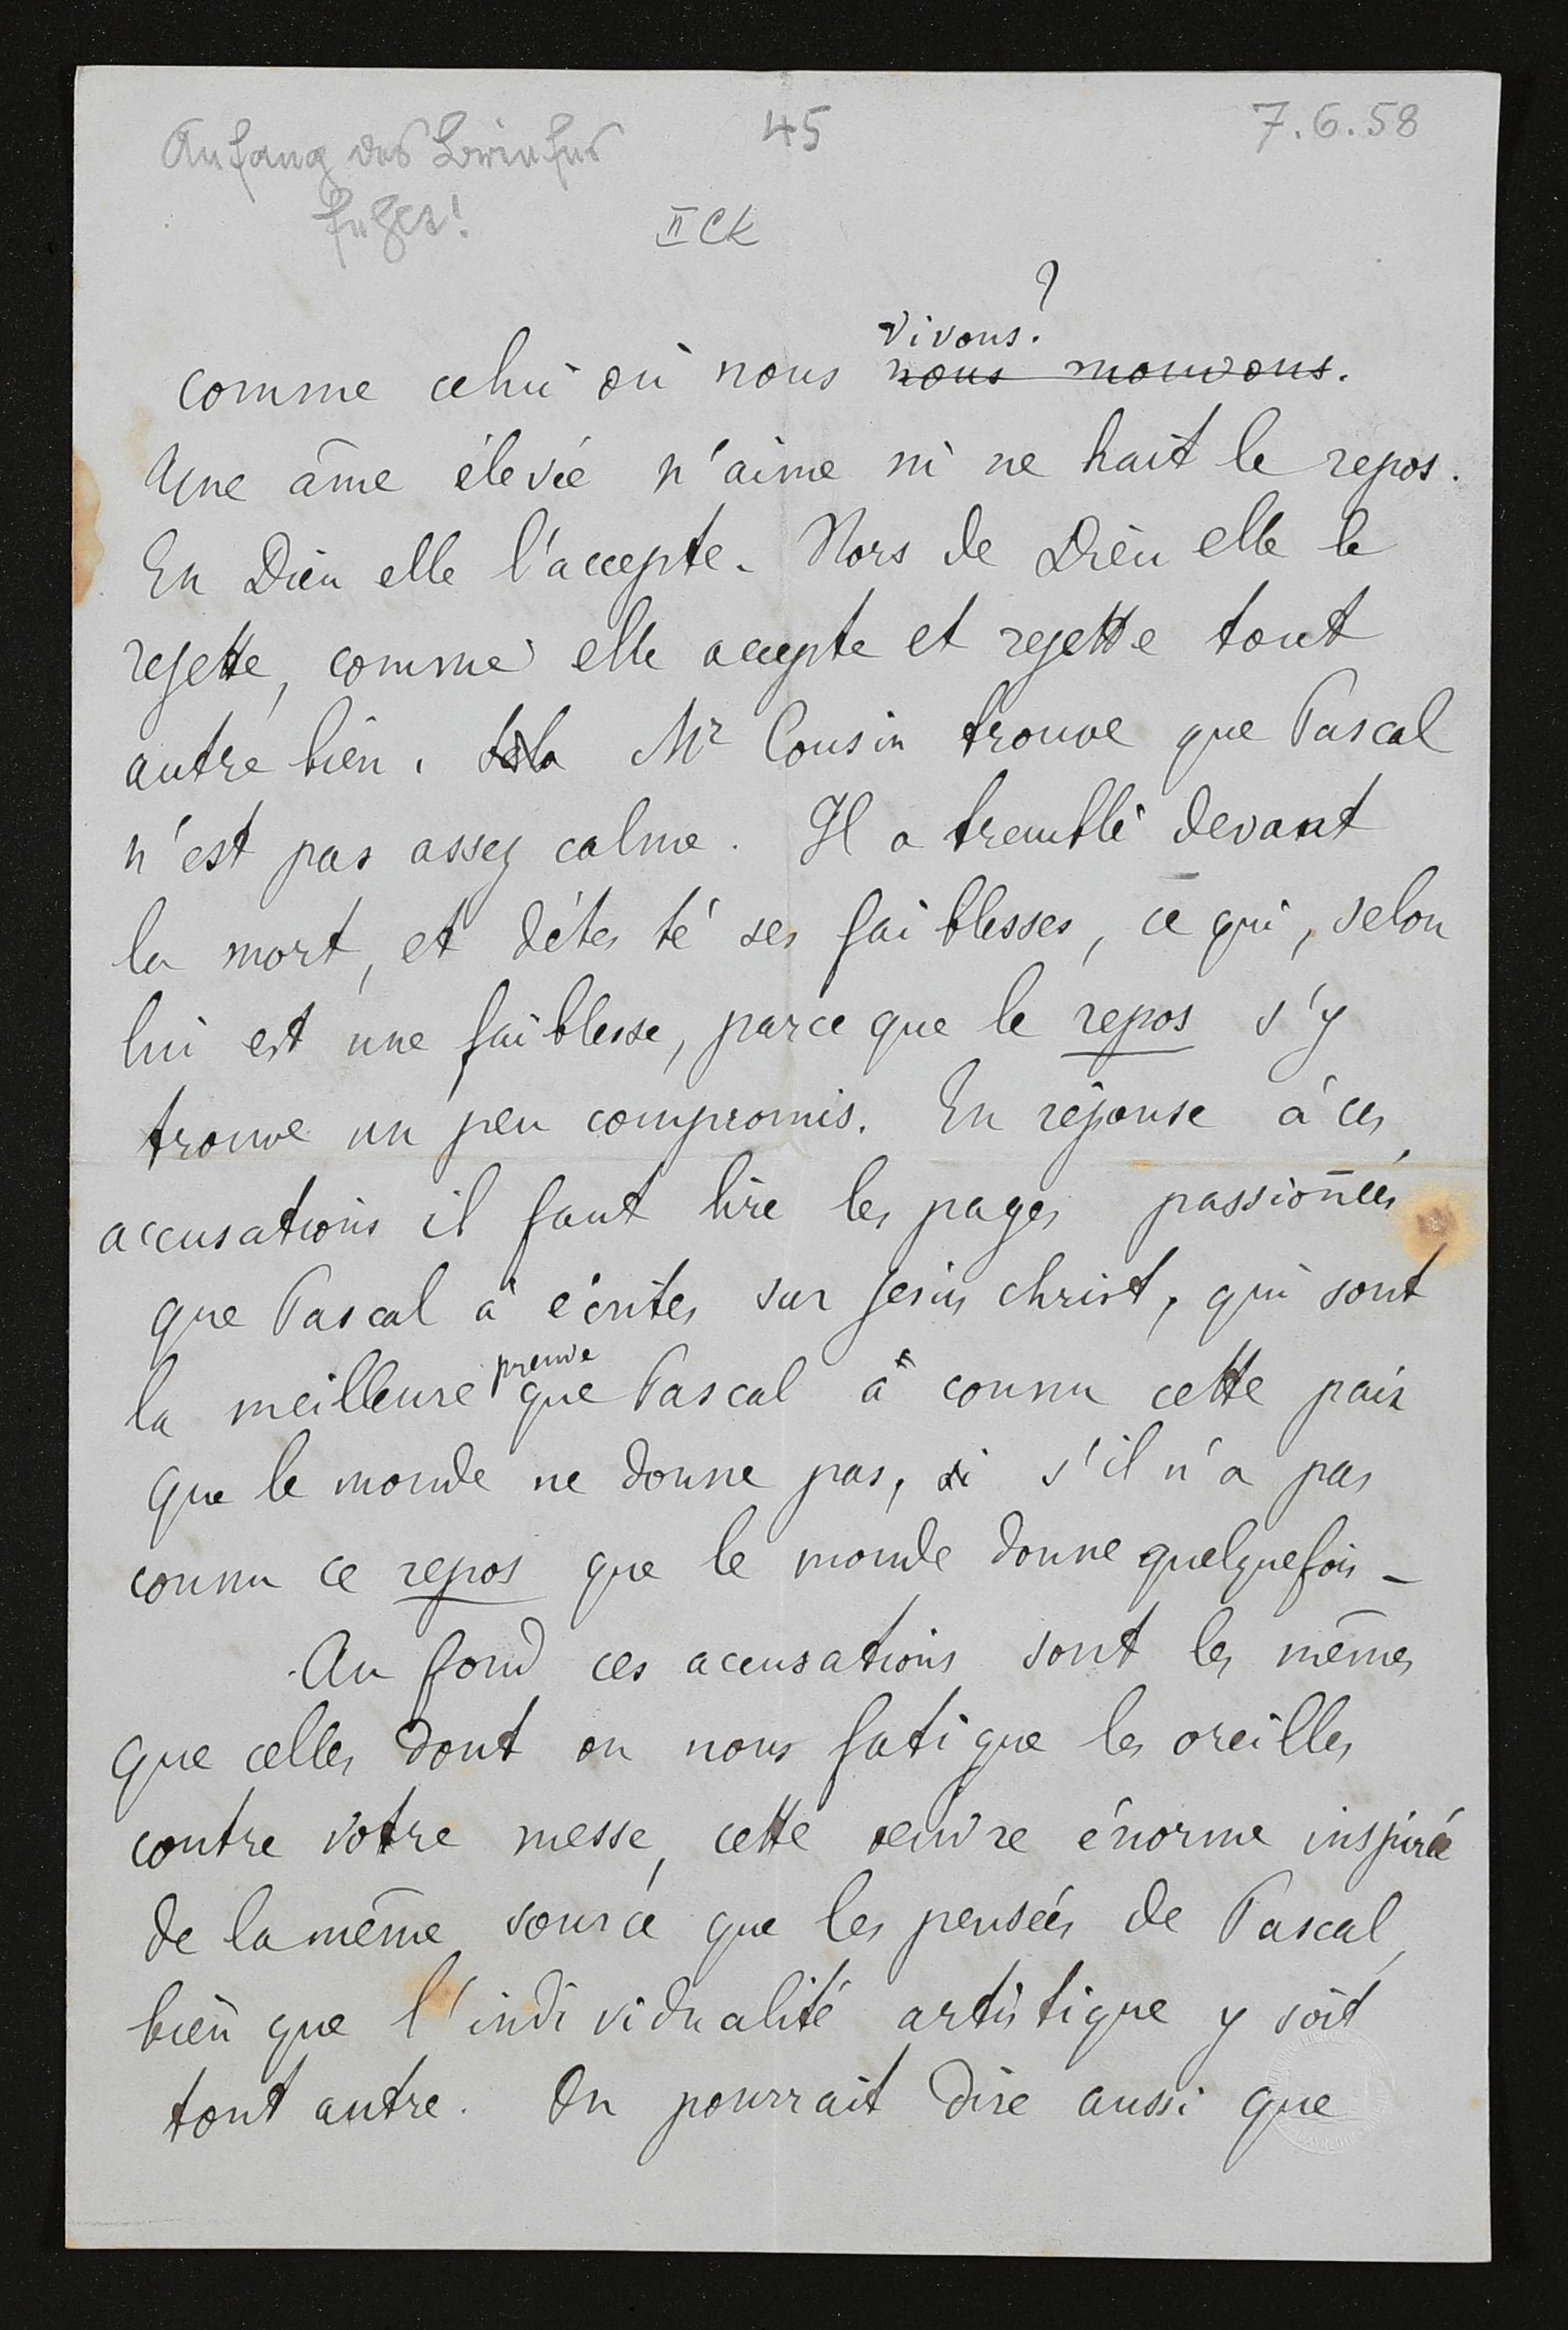 Anfang des Briefes
fehlt!
45
7.6.58
II CK
vivons?
comme celui où nous nous mouvons.
Une âme élevée n'aime ni ne hait le repos.
En Dieu elle l'accepte. Hors de Dieu elle le
rejette, comme elle accepte et rejette tout
autre bien. Mr Cousin trouve que Pascal
n'est pas assez calme. Il a tremblé devant
la mort, et détesté ses faiblesses, ce qui, selon
lui est une faiblesse, parce que le repos s'y
trouve un peu compromis. En réponse à ces
accusations il faut lire les pages passionées
que Pascal à écrites sur Jesus Christ, qui sont
preuve
la meilleure que Pascal a connu cette paix
que le monde ne donne pas, si s'il n'a pas
connu ce repos que le monde donne quelquefois –
Au fond ces accusations sont les mêmes
que celles dont on nous fatigue les oreilles
contre votre messe, cette oeuvre énorme inspirée
de la même source que les pensées de Pascal,
bien que l'individualité artistique y soit
tout autre. On pourrait dire aussi que